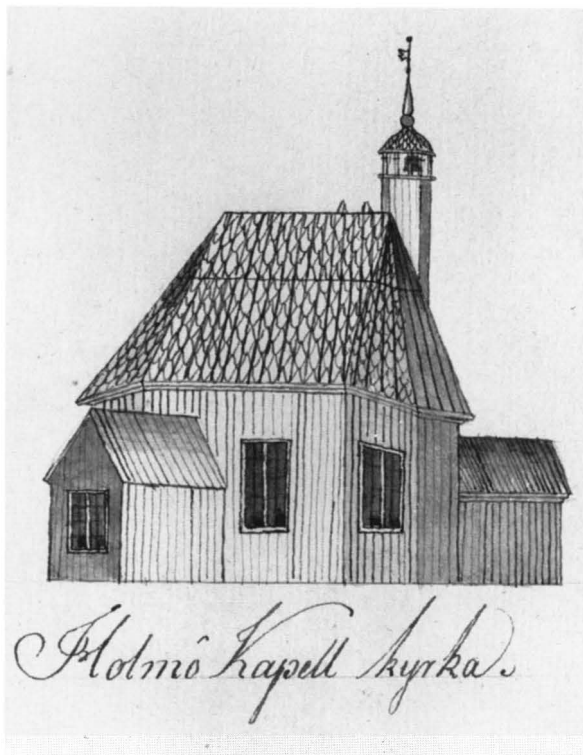 Holmö Kapell kyrka.